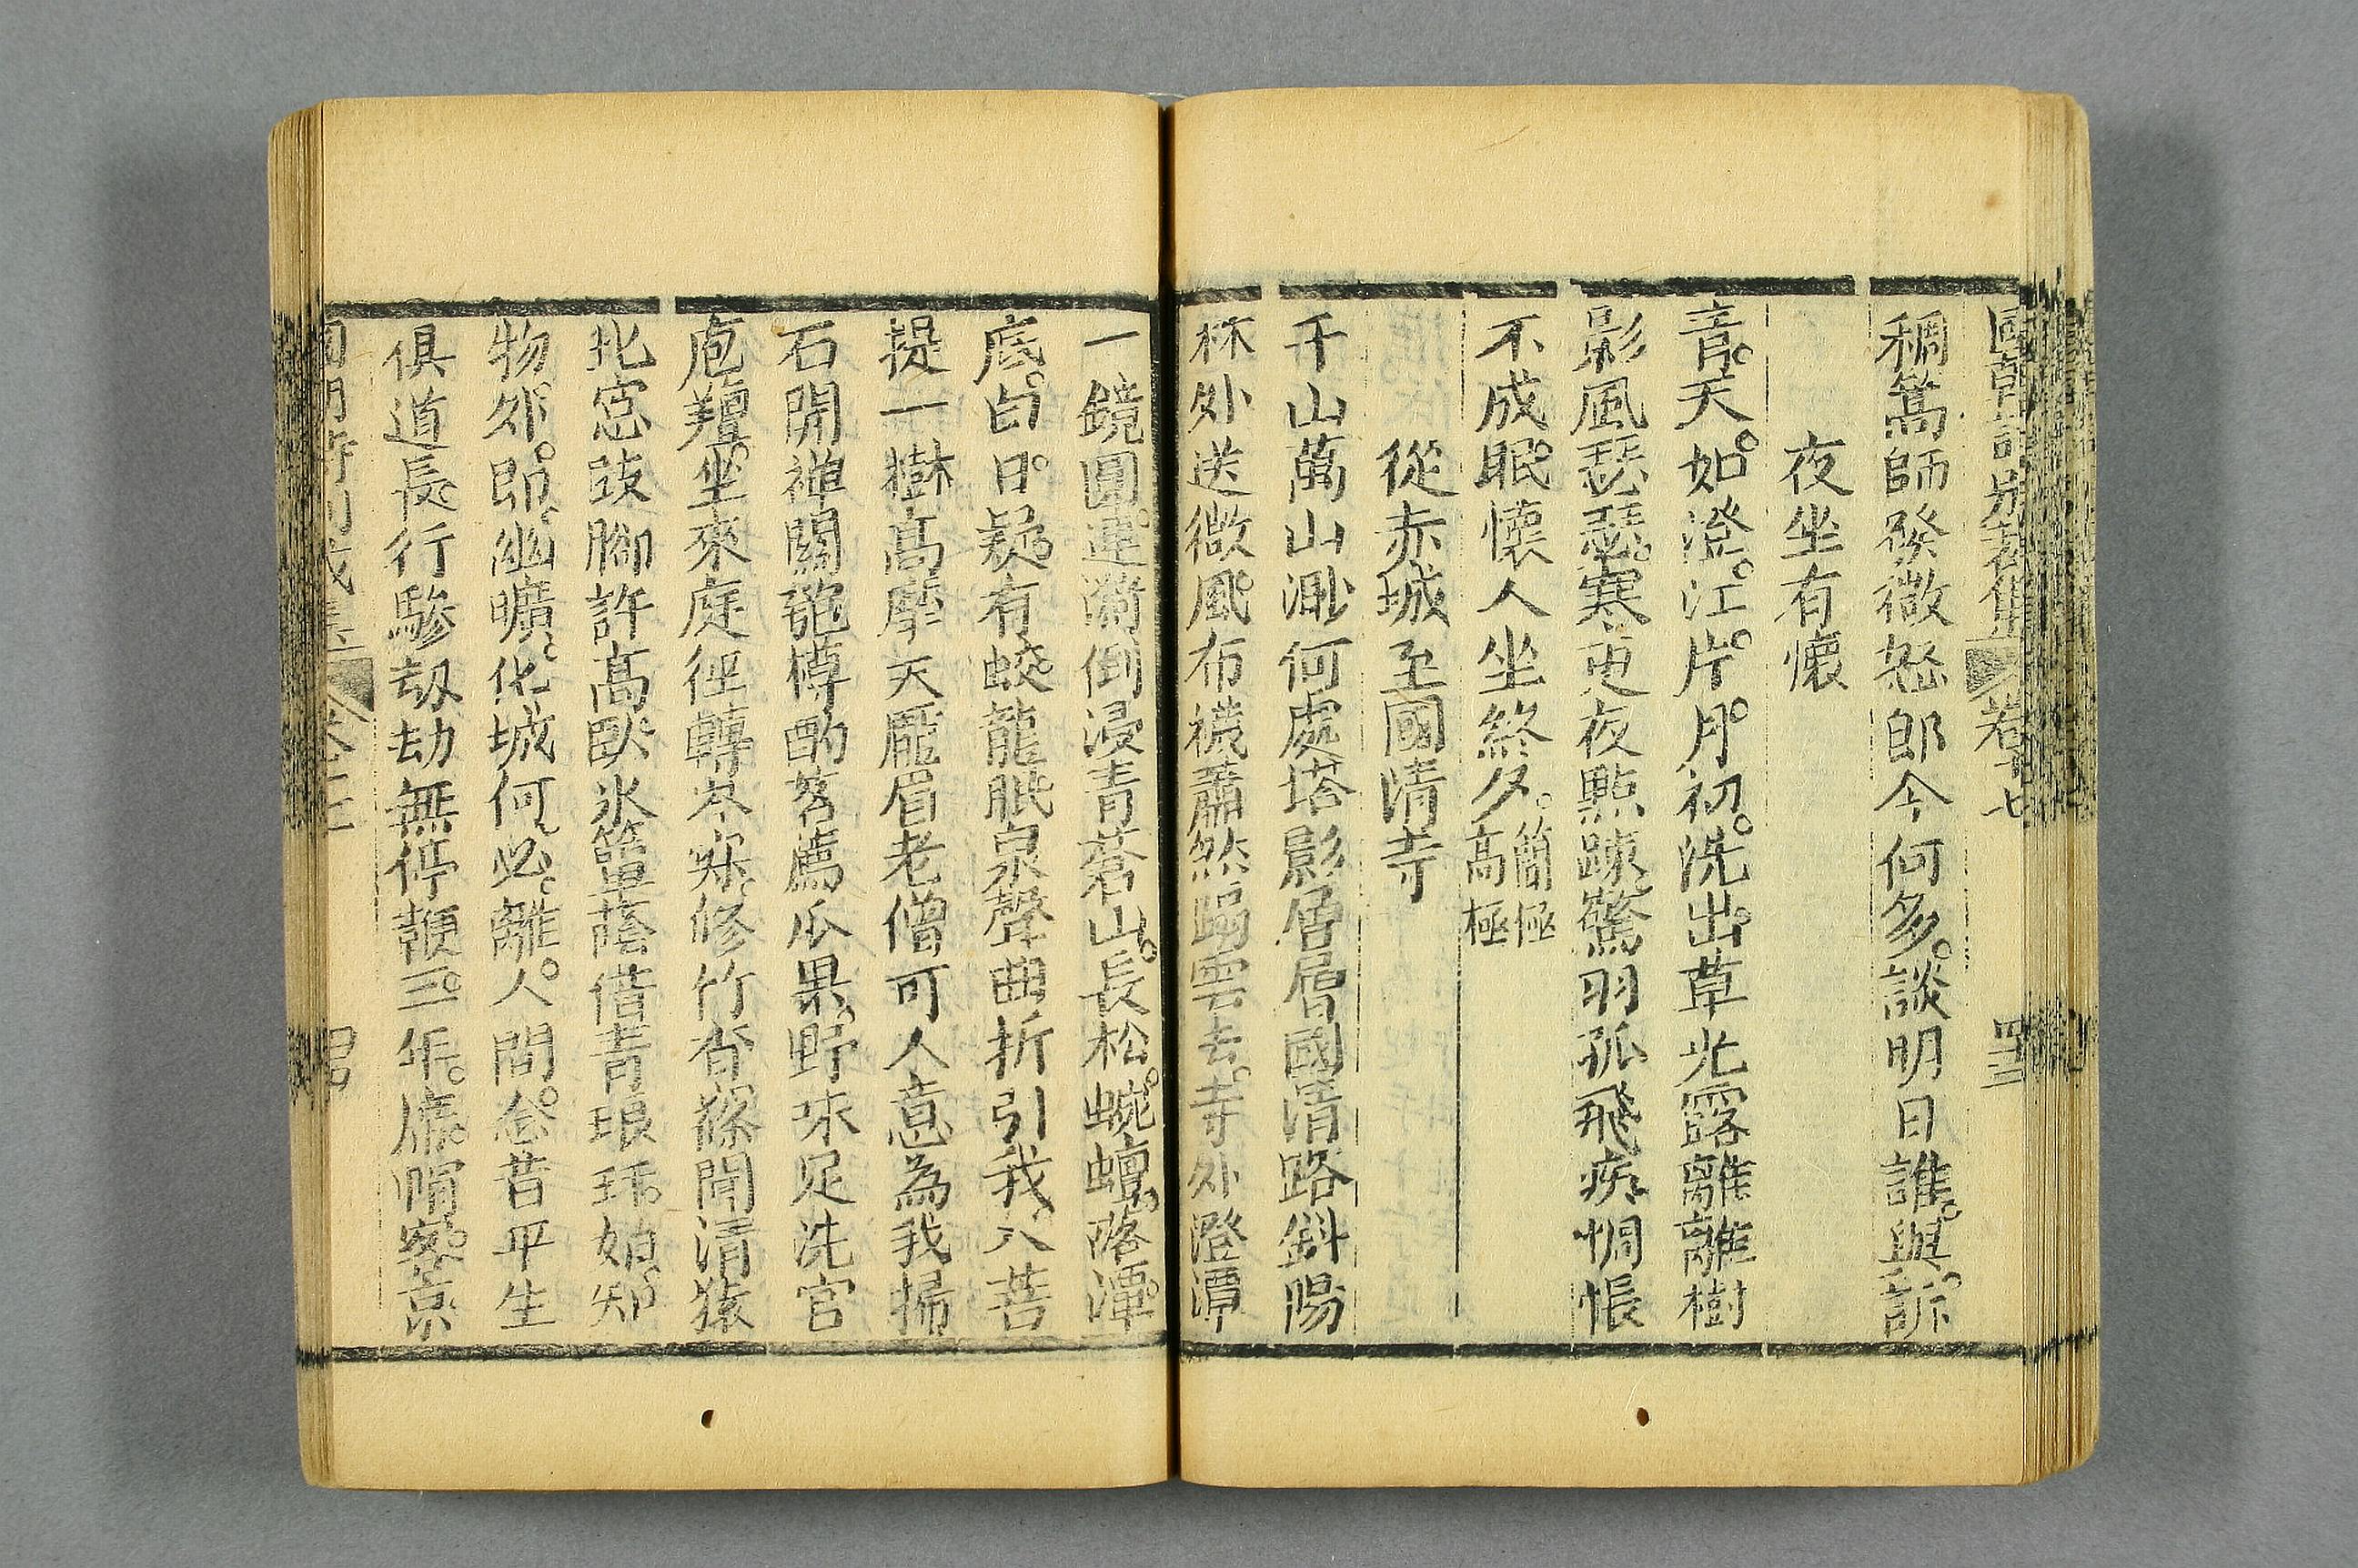 國朝詩別裁集 卷十七 四三
稠篙師發微怒郎今何多談明日誰與訴
夜坐有懷
音天如澄江片月初洗出草光露離離樹
影風瑟瑟寒更夜點疎驚羽孤飛疾惆悵
不成眠懷人坐終夕簡極高極
從赤城至國清寺
千山萬山渺何處塔影層層國清路斜陽
林外送微風布襪蕭然蹋雲去寺外澄潭
一鏡圓蓮漪倒浸青蒼山長松蜿蟺落潭
底白日疑有蛟龍眠泉聲曲折引我入菩
提一樹高摩天厖眉老僧可人意為我掃
石開禅關匏樽酌茗薦瓜果野味足洗官
庖羶坐來庭徑轉岑寂修竹杳篠聞清猿
北窓跂腳許高臥氷簟蔭借青琅玕始知
物外即幽曠化城何必離人間念昔平生
俱道長行驂刼劫無停鞭三年廡帽客京